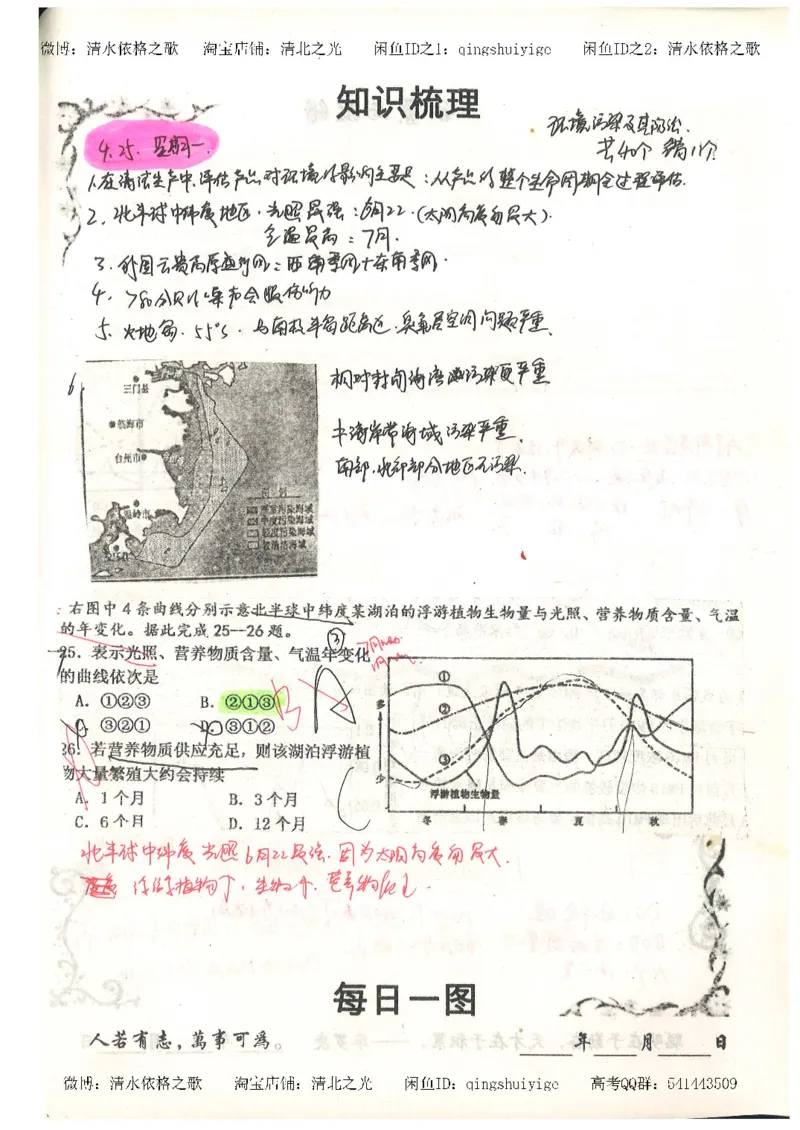 微博：清水依格之歌 淘宝店铺：清北之光 闲鱼ID之1：qingshuiyige 闲鱼ID之2：清水依格之歌
知识梳理
环境污染及其防治.
共40个 错11个
4.25. 星期一.
1.在清洁生产中,评估产品对环境的影响主要是：从产品的整个生命周期全过程评估.
2.北半球中纬度地区.光照最强：6月22.(太阳高度角最大).
气温最高：7月.
3.我国云贵高原盛行风：西南季风+东南季风.
4.>80分贝的噪声会损伤听力
5.火地岛.55°S.与南极半岛距离近.臭氧层空洞问题严重.
6
相对封闭海湾处污染更严重
三门县
临海市
台州市
温岭市
图例
严重污染海域
中度污染海域
轻度污染海域
较清洁海域
半海岸带海域污染严重.
南部.北部部分地区无污染.
右图中4条曲线分别示意北半球中纬度某湖泊的浮游植物生物量与光照、营养物质含量、气温
的年变化。据此完成25--26题。
25．表示光照、营养物质含量、气温年变化
的曲线依次是
A．①②③ B．②①③
C．③②① D．③①②
26．若营养物质供应充足，则该湖泊浮游植
物大量繁殖大约会持续
A．1个月 B．3个月
C．6个月 D．12个月
③
B
A
C
多
少
①
②
③
浮游植物生物量
冬 春 夏 秋
北半球中纬度光照6月22最强.因为太阳高度角最大.
浮游植物↑.生物量↑.营养物质↓.
每日一图
人若有志，萬事可為。
年 月 日
微博：清水依格之歌 淘宝店铺：清北之光 闲鱼ID：qingshuiyige 高考QQ群：541443509